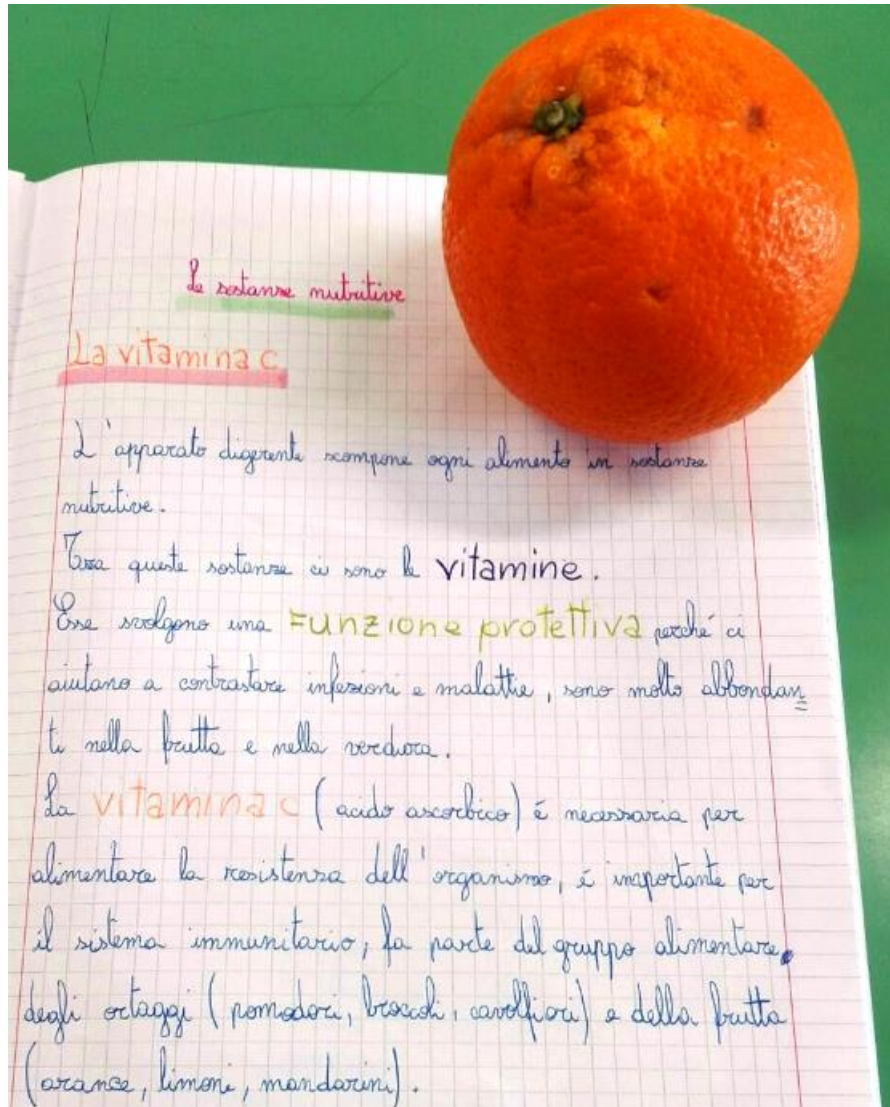 Le sostanze nutritive
La vitamina c
L'apparato digerente scompone ogni alimento in sostanze
nutritive.
Tra queste sostanze ci sono le vitamine.
Esse svolgono una Funzione protettiva perché ci
aiutano a contrastare infezioni e malattie, sono molto abbondan=
ti nella frutta e nella verdura.
La vitamina c (acido ascorbico) é necessaria per
alimentare la resistenza dell'organismo, é importante per
il sistema immunitario, fa parte del gruppo alimentare
degli ortaggi (pomodori, broccoli, cavolfiori) e della frutta
(arance, limoni, mandarini).